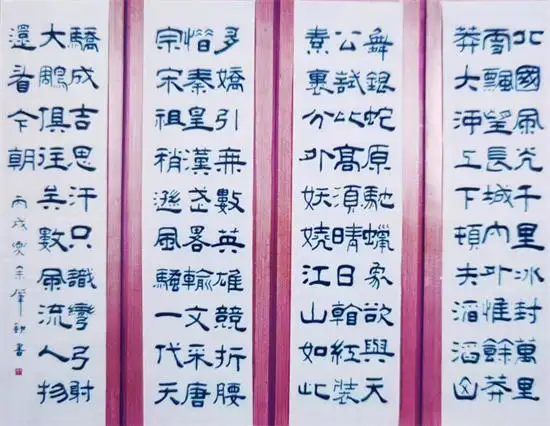 北國風光千里冰封萬里
雪飄望長城內外惟餘莽
莽大河上下頓失滔滔山
舞銀蛇原馳蠟象欲與天
公試比高須晴日看紅裝
素裹分外妖嬈江山如此
多嬌引無數英雄競折腰
惜秦皇漢武略輸文采唐
宗宋祖稍遜風騷一代天
驕成吉思汗只識彎弓射
大鵰俱往矣數風流人物
還看今朝
丙戌 書